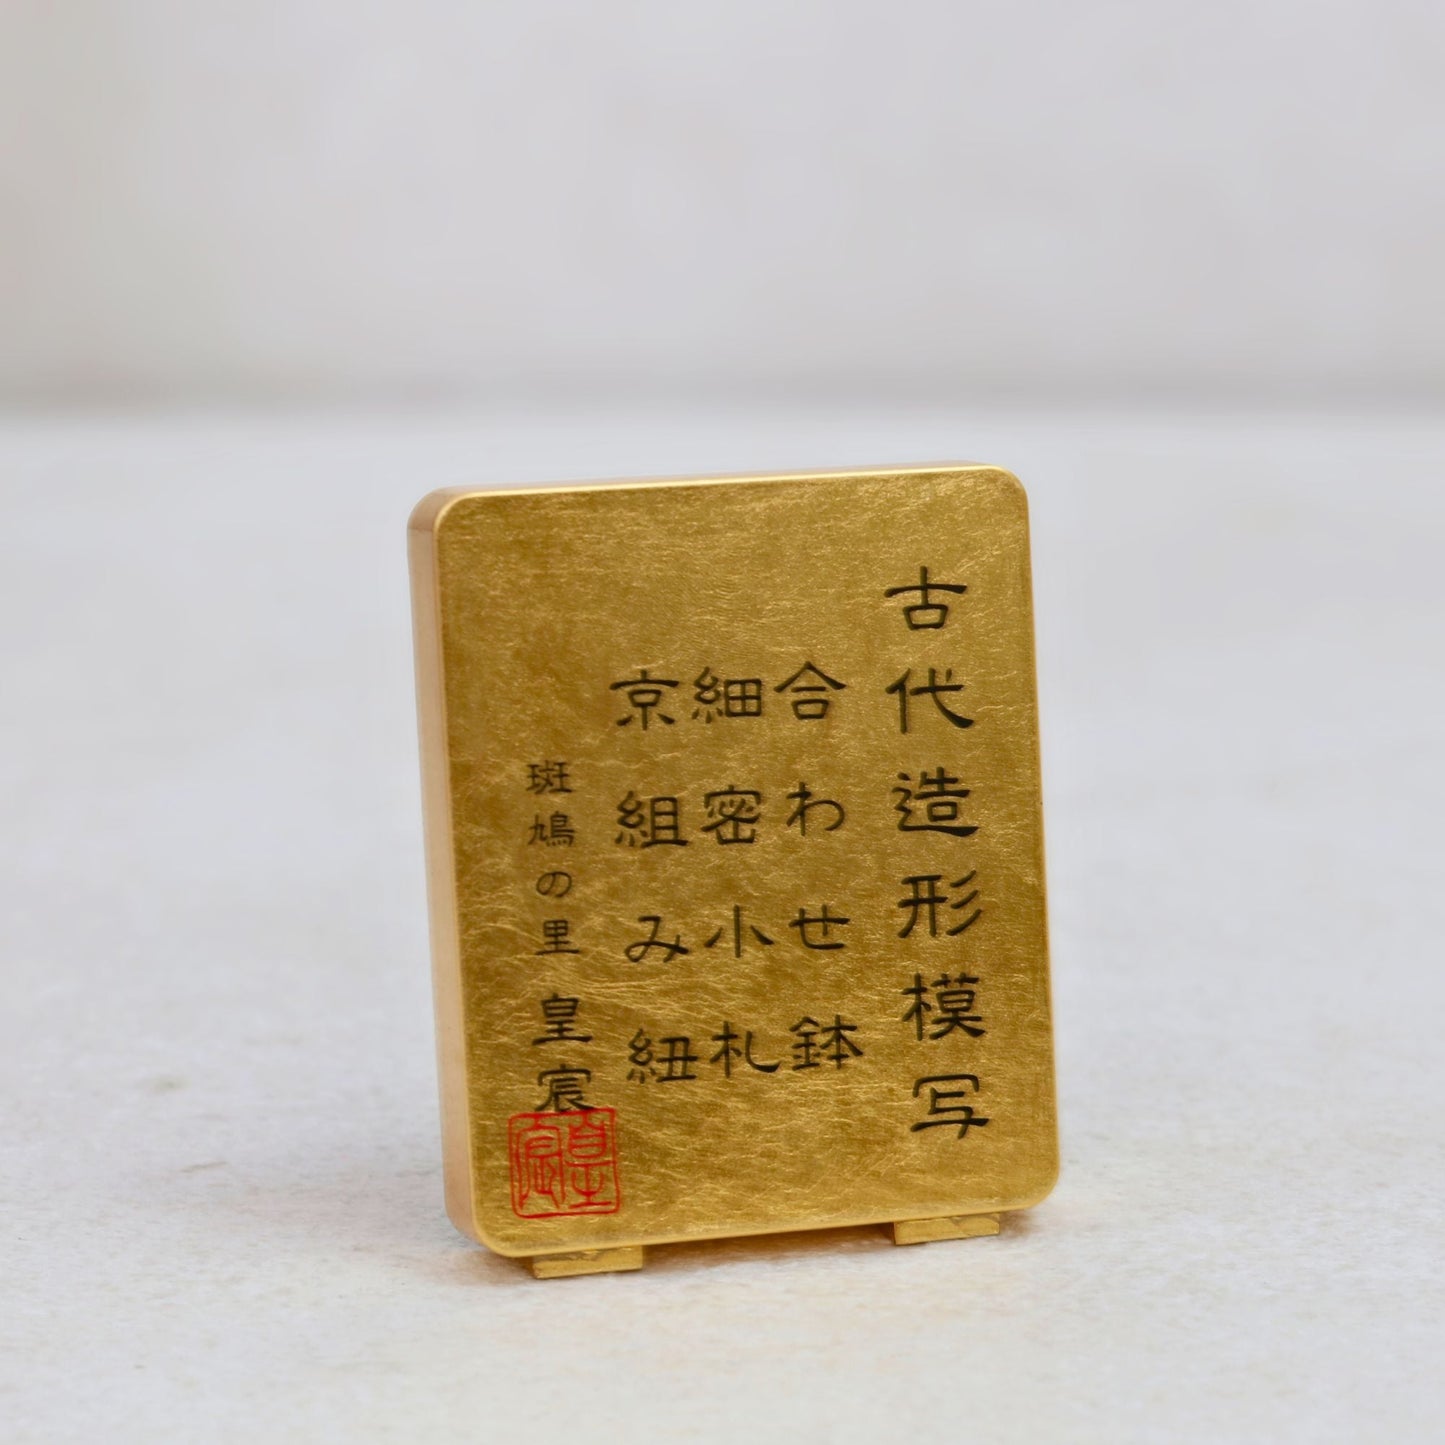 古代造形模写
合わせ鉢
細密小札
京組み紐
斑鳩の里 皇宸
皇宸